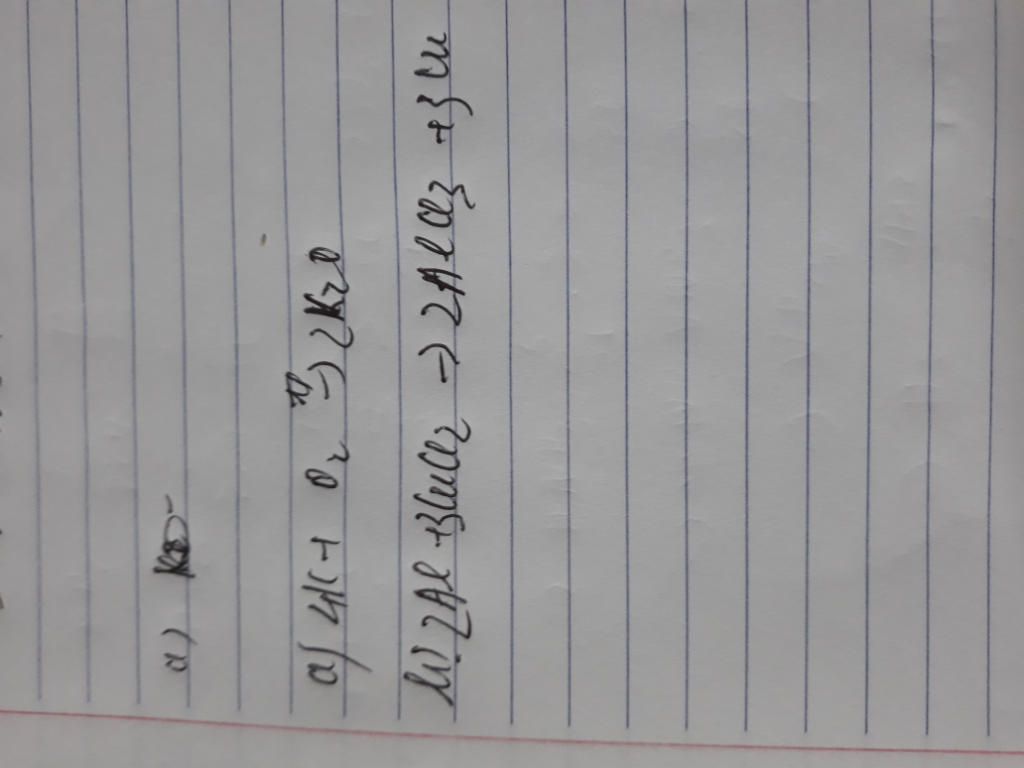 a)
a) 4K + O₂ t° → 2K₂O
b) 2Al + 3CuCl₂ → 2AlCl₃ + 3Cu